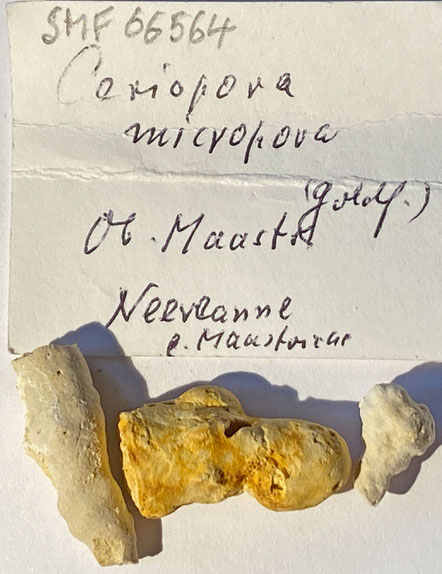 SMF 66564
Ceriopora
micropora
(Goldf.)
Ob. Maastr.
Neercanne